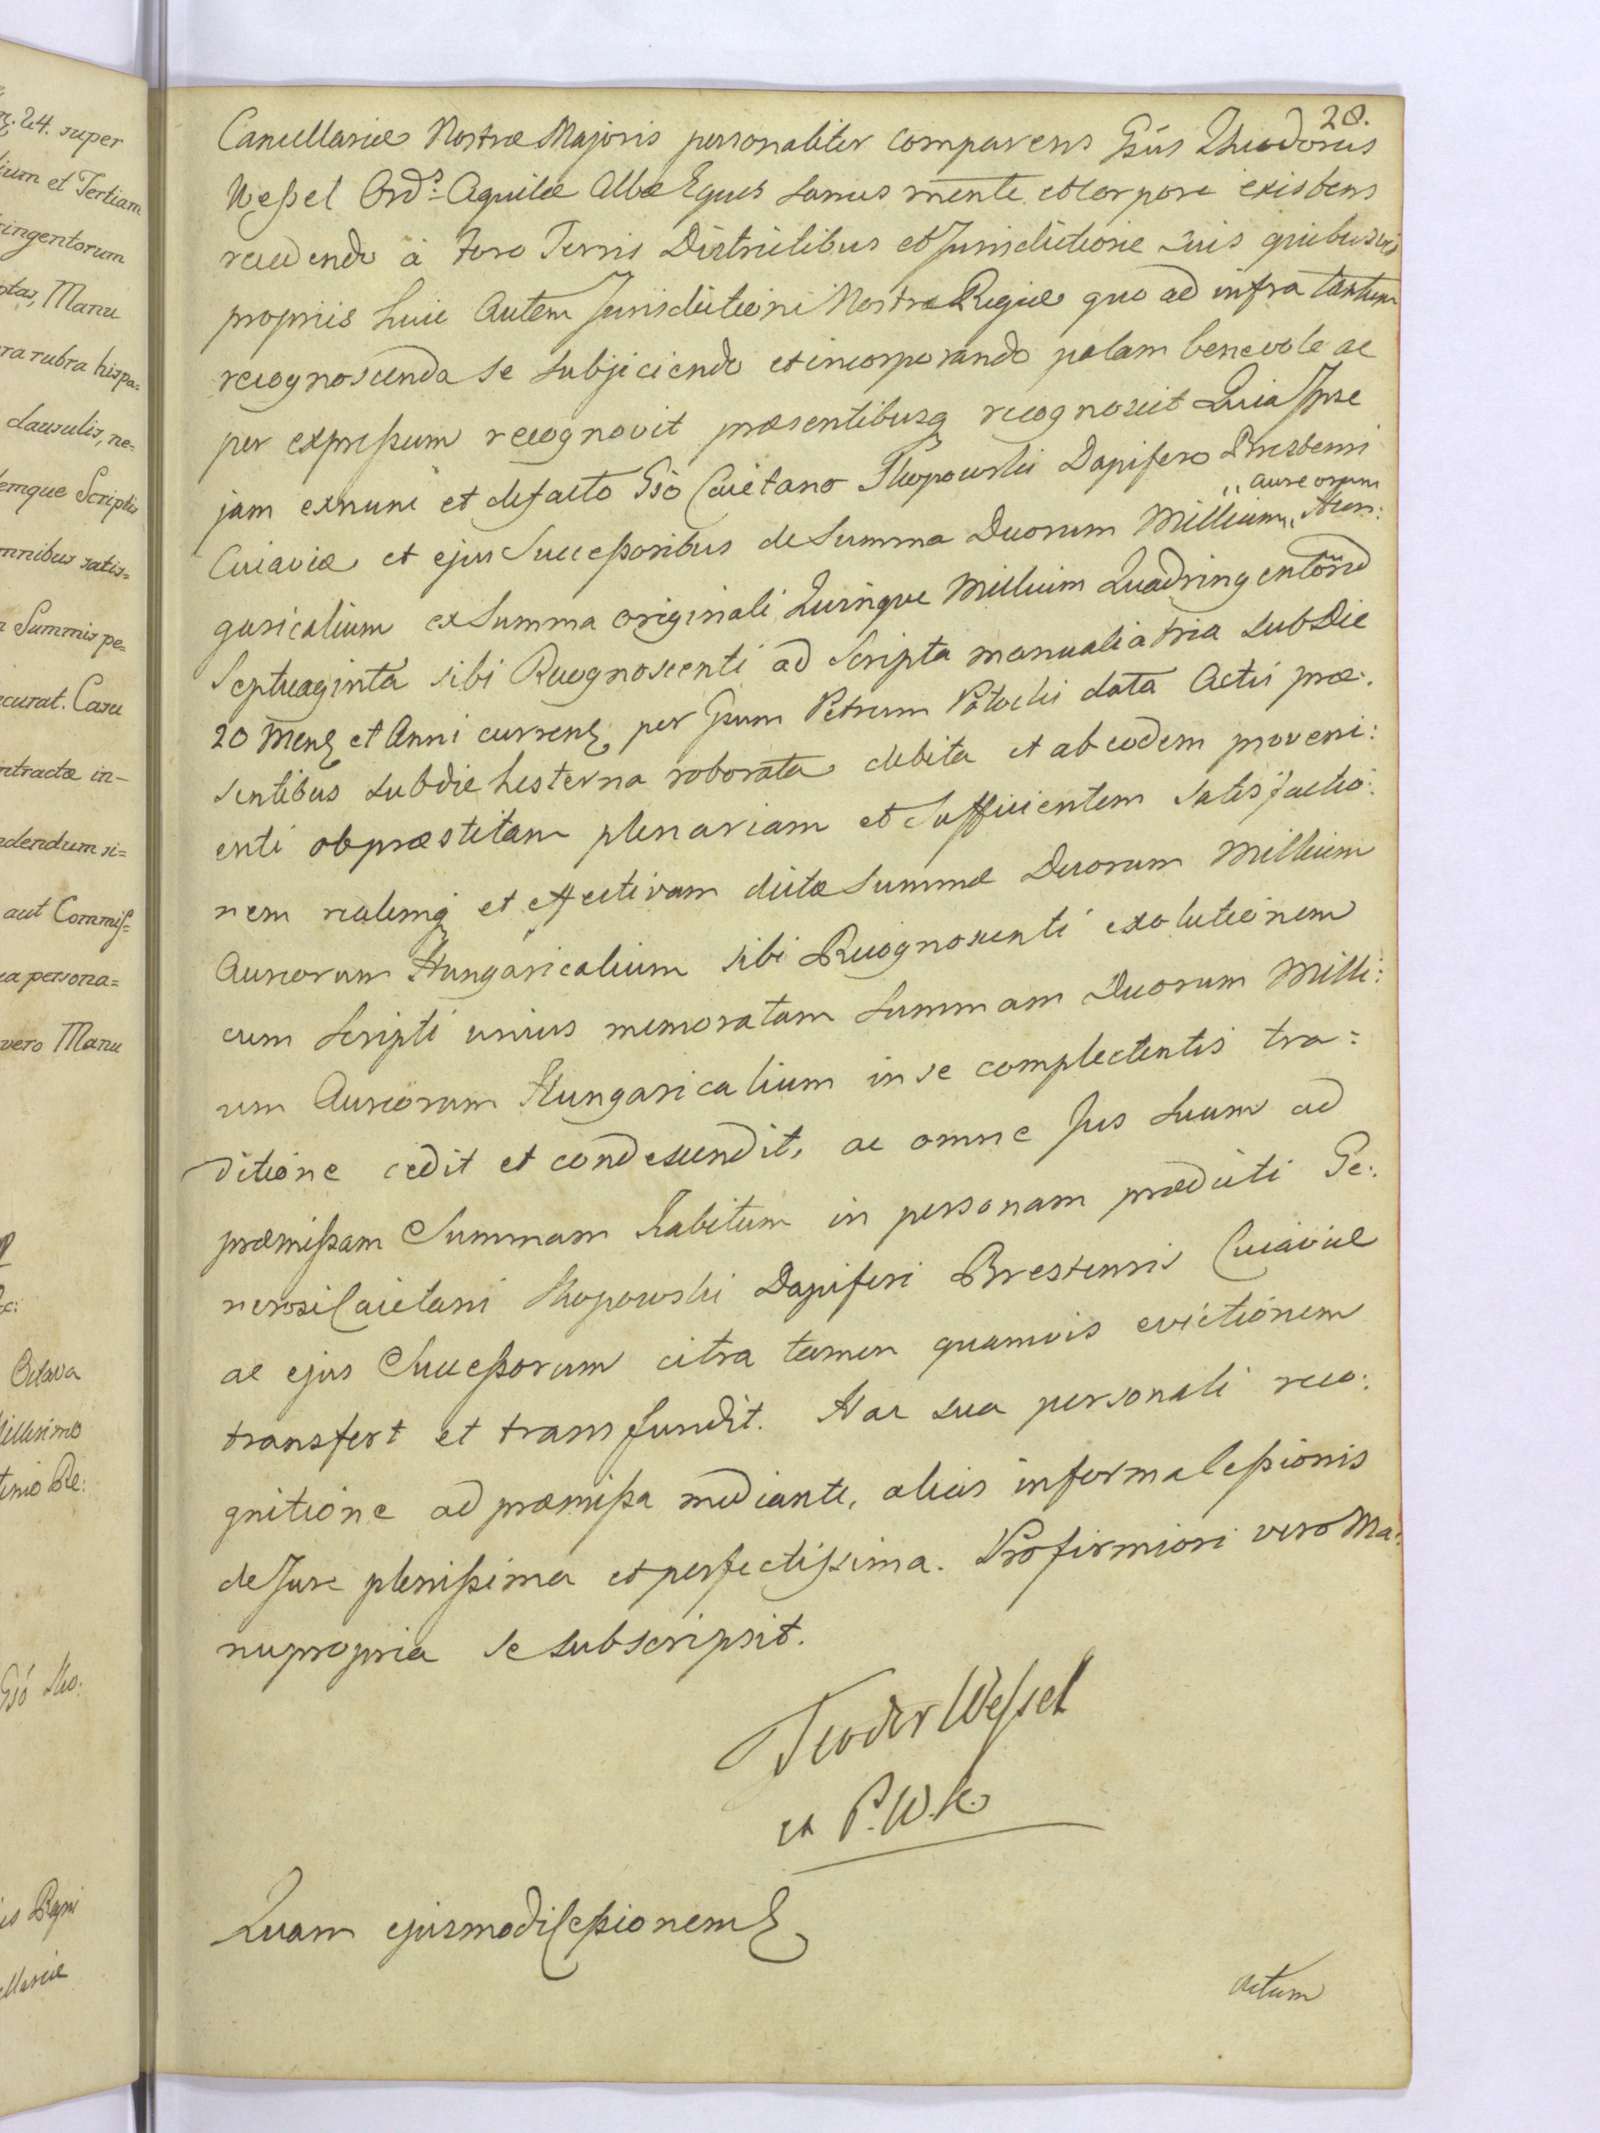 28.
Cancellariæ Nostræ Majoris personaliter comparens Gsus Theodorus
Weßel Ord^s: Aquilæ Albæ Eques sanus mente et corpore existens
recedendo à foro Terris Districtibus et Jurisdictione suis quibusvis
propriis huic autem Jurisdictioni Nostræ Regiæ quo ad infra tantum
recognoscenda se subjiciendo et incorporando palam benevole ac
per expreßum recognovit præsentibusq recognoscit Quia Ipse
jam ex nunc et de facto Gso Caietano Skopowski Dapifero Brestensi
Cuiaviæ et ejus Succeßoribus de Summa Duorum Millium „aureorum Hun:
garicalium ex Summa originali Quinque Millium Quadringentorū
Septuaginta sibi Recognoscenti ad Scripta manualia tria sub Die
20 Mens et Anni currens per Gsum Petrum Potocki data Actis præ:
sentibus sub die hesterna roborata debita et ab eodem proveni:
enti ob præstitam plenariam et Sufficientem satisfactio:
nem realemq et effectivam dictæ Summæ Duorum Millium
Aureorum Hungaricalium sibi Recognoscenti exolutionem
cum Scripti unius memoratam Summam Duorum Milli:
um Aureorum Hungaricalium in se complectentis tra:
ditione cedit et condescendit, ac omne Jus suum ad
præmißam Summam habitum in personam prædicti Ge:
nerosi Caietani Skopowski Dapiferi Brestensis Cuiaviæ
ac ejus Succeßorum citra tamen quamvis evictionem
transfert et transfundit. Hac sua personali reco:
gnitione ad præmißa mediante, alias in forma Ceßionis
de Jure plenißima et perfectißima. Pro firmiori vero Ma:
nu propria se subscripsit.
Teodor Weßel
P. W. K.
Quam ejusmodi Ceßionem
Actum
n. 24. super
ium et Tertiam
ringentorum
otas, Manu
ra rubra hispa=
clausulis, ne=
emque Scriptis
mnibus satis=
Summis pe=
curat. Casu
ntractæ in-
dendum si=
aut Commiß=
ea persona=
vero Manu
Octava
illesimo
Gsó Sko:
is Regni
ellariæ